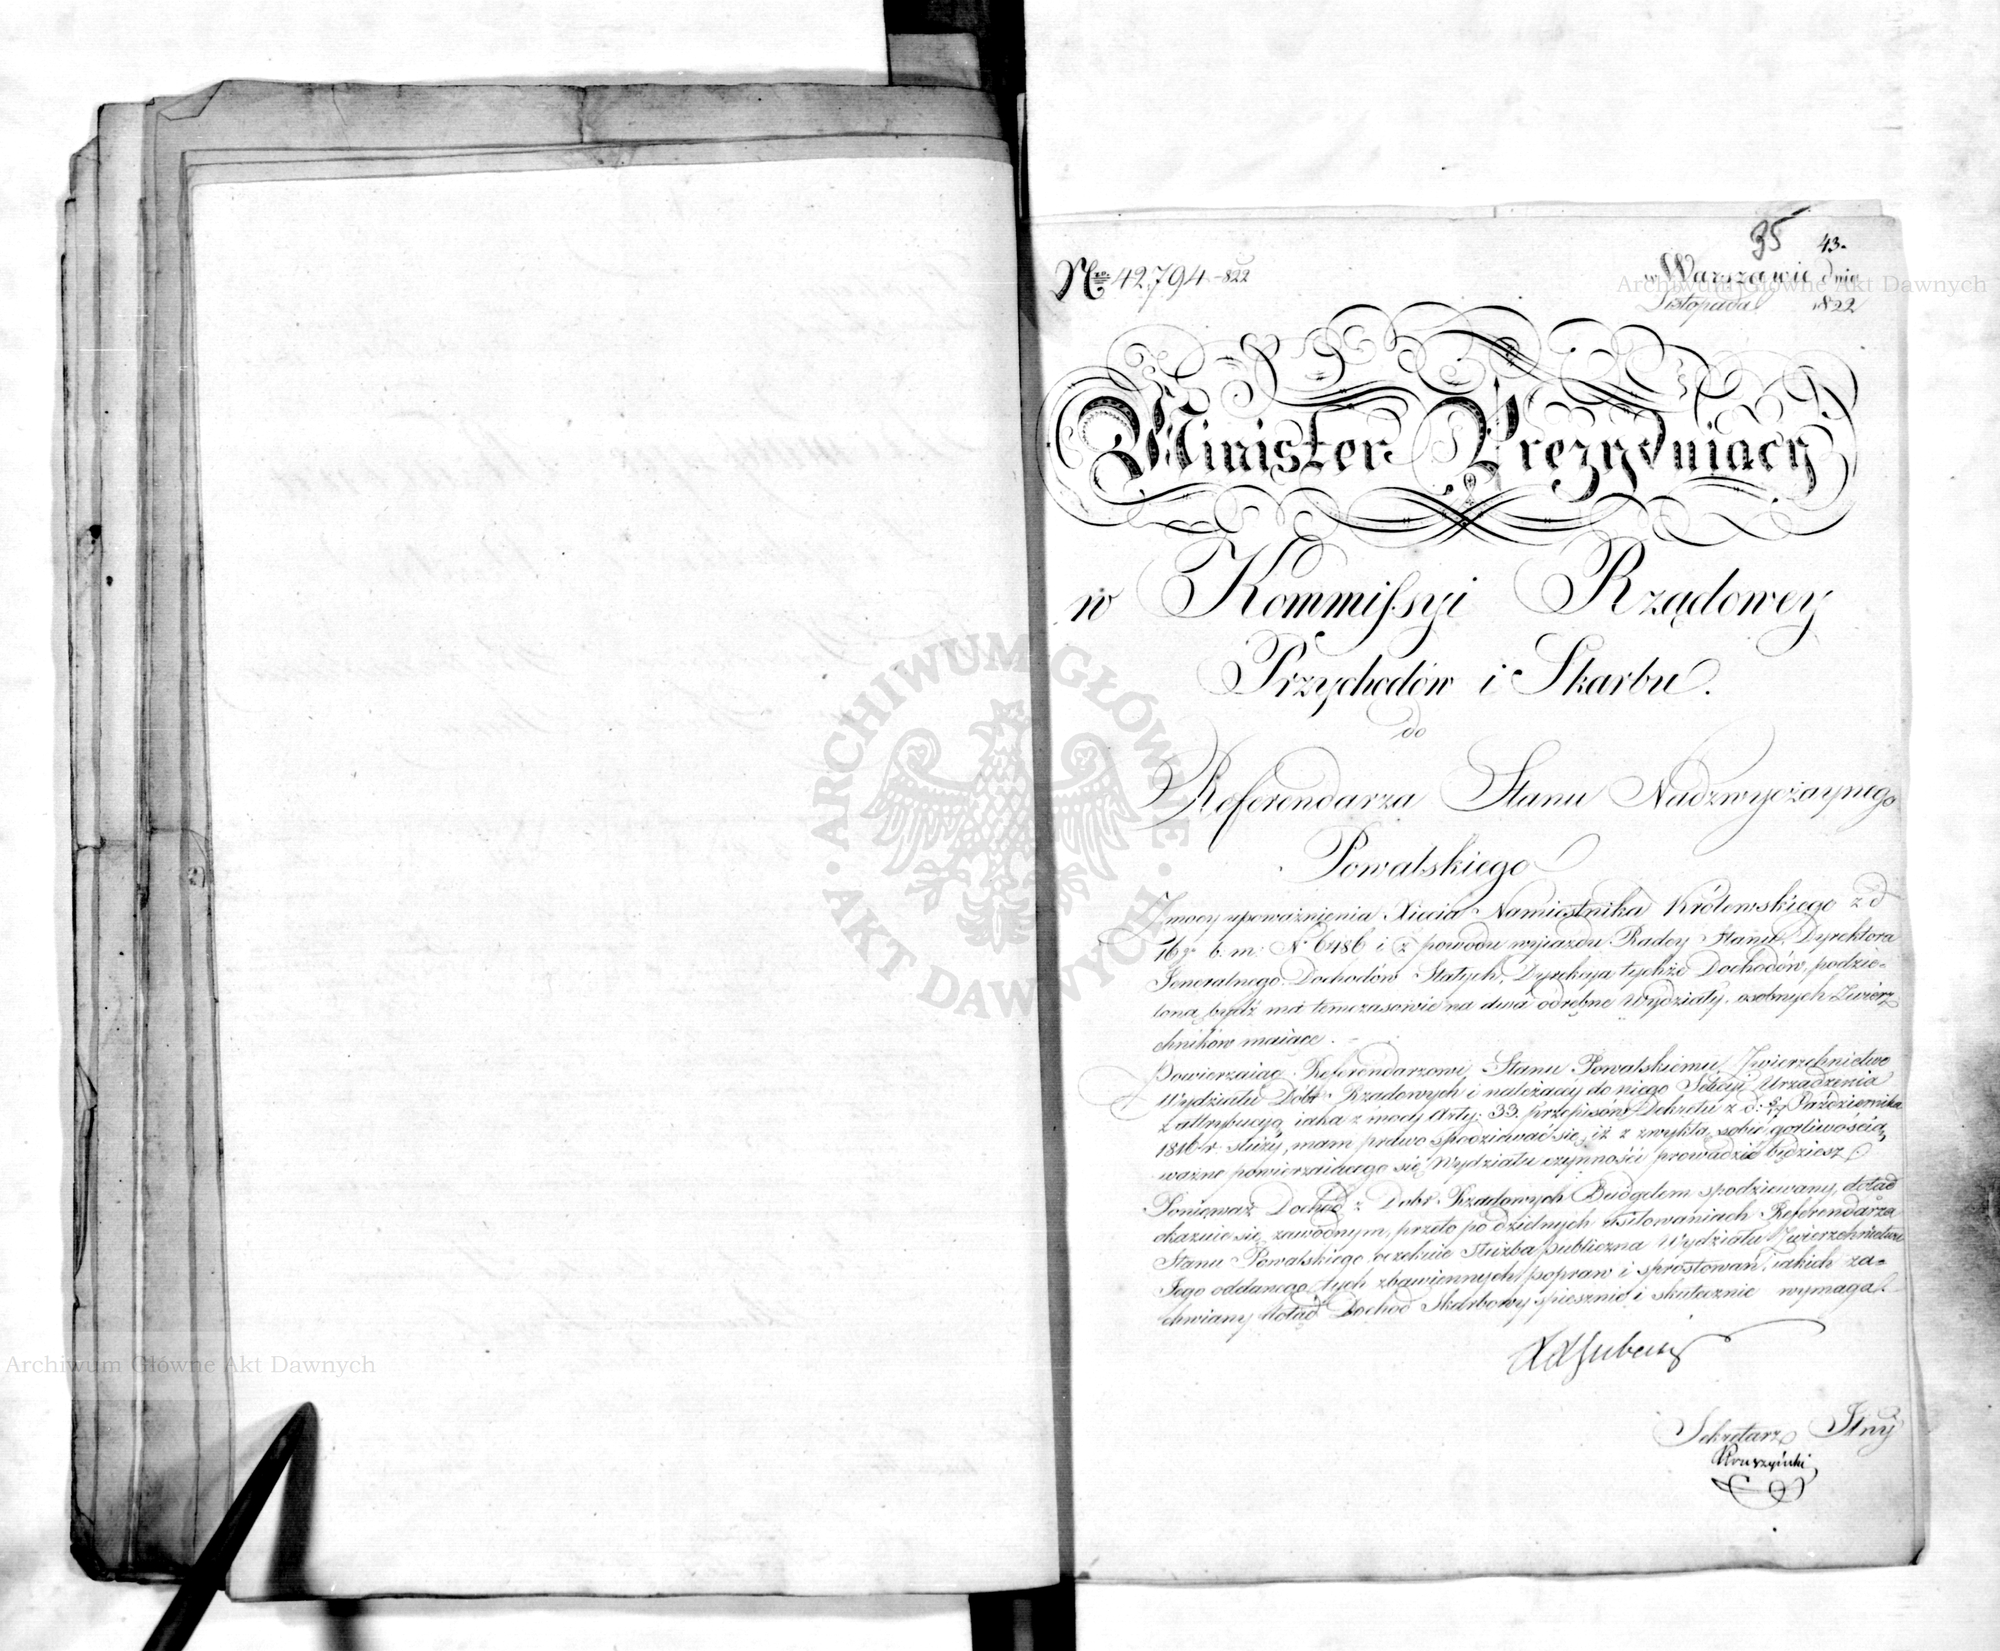 35 43.
Nro 42,794 -822
w Warszawie dnia
Listopada 1822
Minister Prezyduiący
w Kommissyi Rządowey
Przychodów i Skarbu.
do
Referendarza Stanu Nadzwyczaynego
Powalskiego
Z mocy upoważnienia Xięcia Namiestnika Królewskiego z d
16 b. m. N 6486 i z powodu wyiazdu Radcy Stanu, Dyrektora
Generalnego Dochodów Stałych, Dyrekcya tychże Dochodów, podzie-
loną bydź ma temczasowie na dwa odrębne Wydziały, osobnych Zwierz
chników maiące.
Powierzaiąc Referendarzowi Stanu Powalskiemu Zwierzchnictwo
Wydziału Dóbr Rządowych i należącéy do niego Sekcyi Urządzenia
z attrybucyą iaka z mocy Arty: 33. przepisów Dekretu z d: 5/17 Października
1816 r. służy, mam prawo spodziewać się, iż z zwykłą sobie gorliwością
ważne powierzaiącego się Wydziału czynności prowadzić będziesz.
Ponieważ Dochód z Dóbr Rządowych Budgetem spodziewany, dotąd
okazuie się zawodnym, przeto po dzielnych usiłowaniach Referendarza
Stanu Powalskiego oczekuie służba publiczna Wydziału Zwierzchnictwu
Jego oddanego, tych zbawiennych popraw i sprostowań, iakich za-
chwiany dotąd Dochód Skarbowy spiesznie i skutecznie wymaga.
Sekretarz Jlny
Kruszyński
ARCHIWUM GŁÓWNE AKT DAWNYCH
Archiwum Główne Akt Dawnych
Archiwum Główne Akt Dawnych